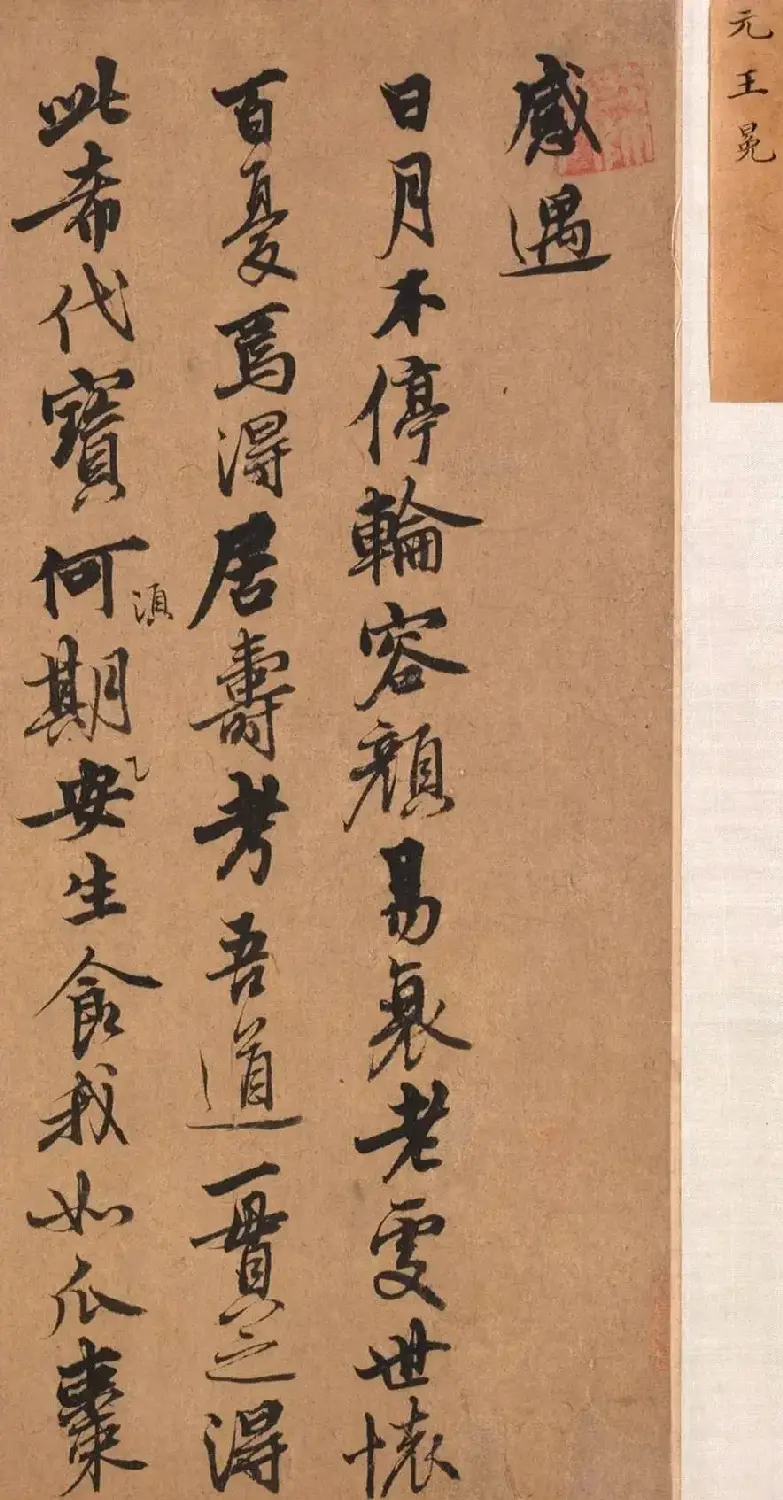 元王冕
感遇
日月不停輪容顏易衰老處世懷
百憂焉得居壽考吾道一貫之得
此希代寶何期安生食我如瓜棗
湏